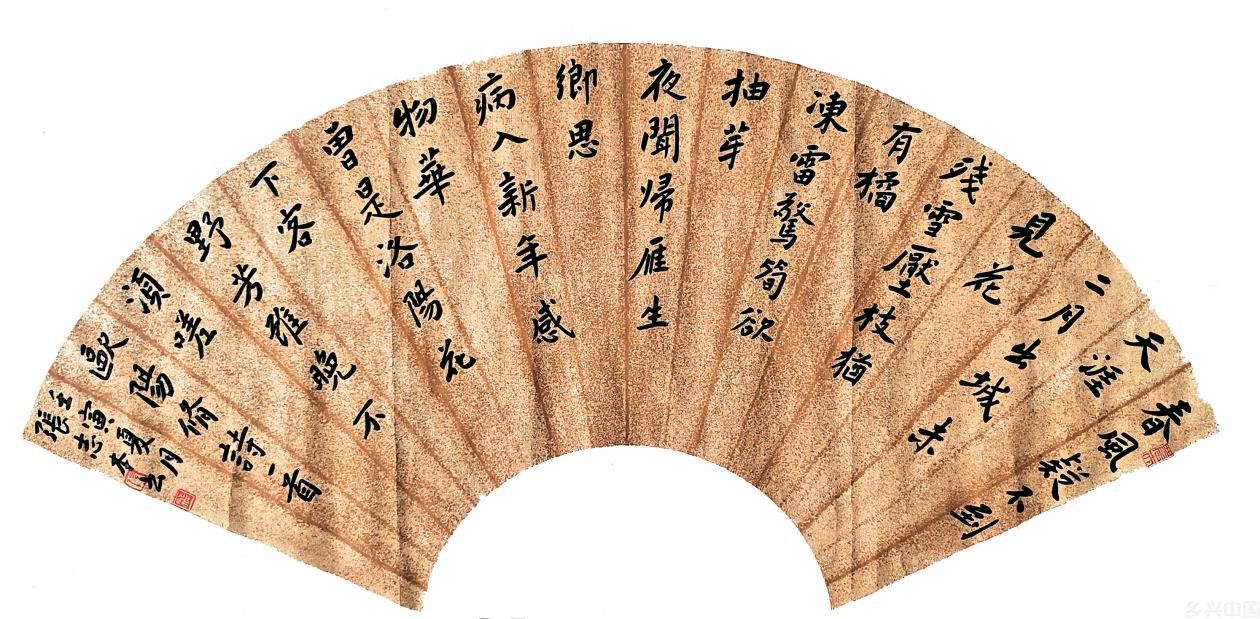 春風疑不到
天涯
二月山城未
見花
残雪壓枝猶
有橘
凍雷驚筍欲
抽芽
夜聞帰雁生
鄉思
病入新年感
物華
曽是洛陽花
下客
野芳雖晚不
須嗟
歐陽脩詩一首
壬寅夏月
張志
乡兴中国